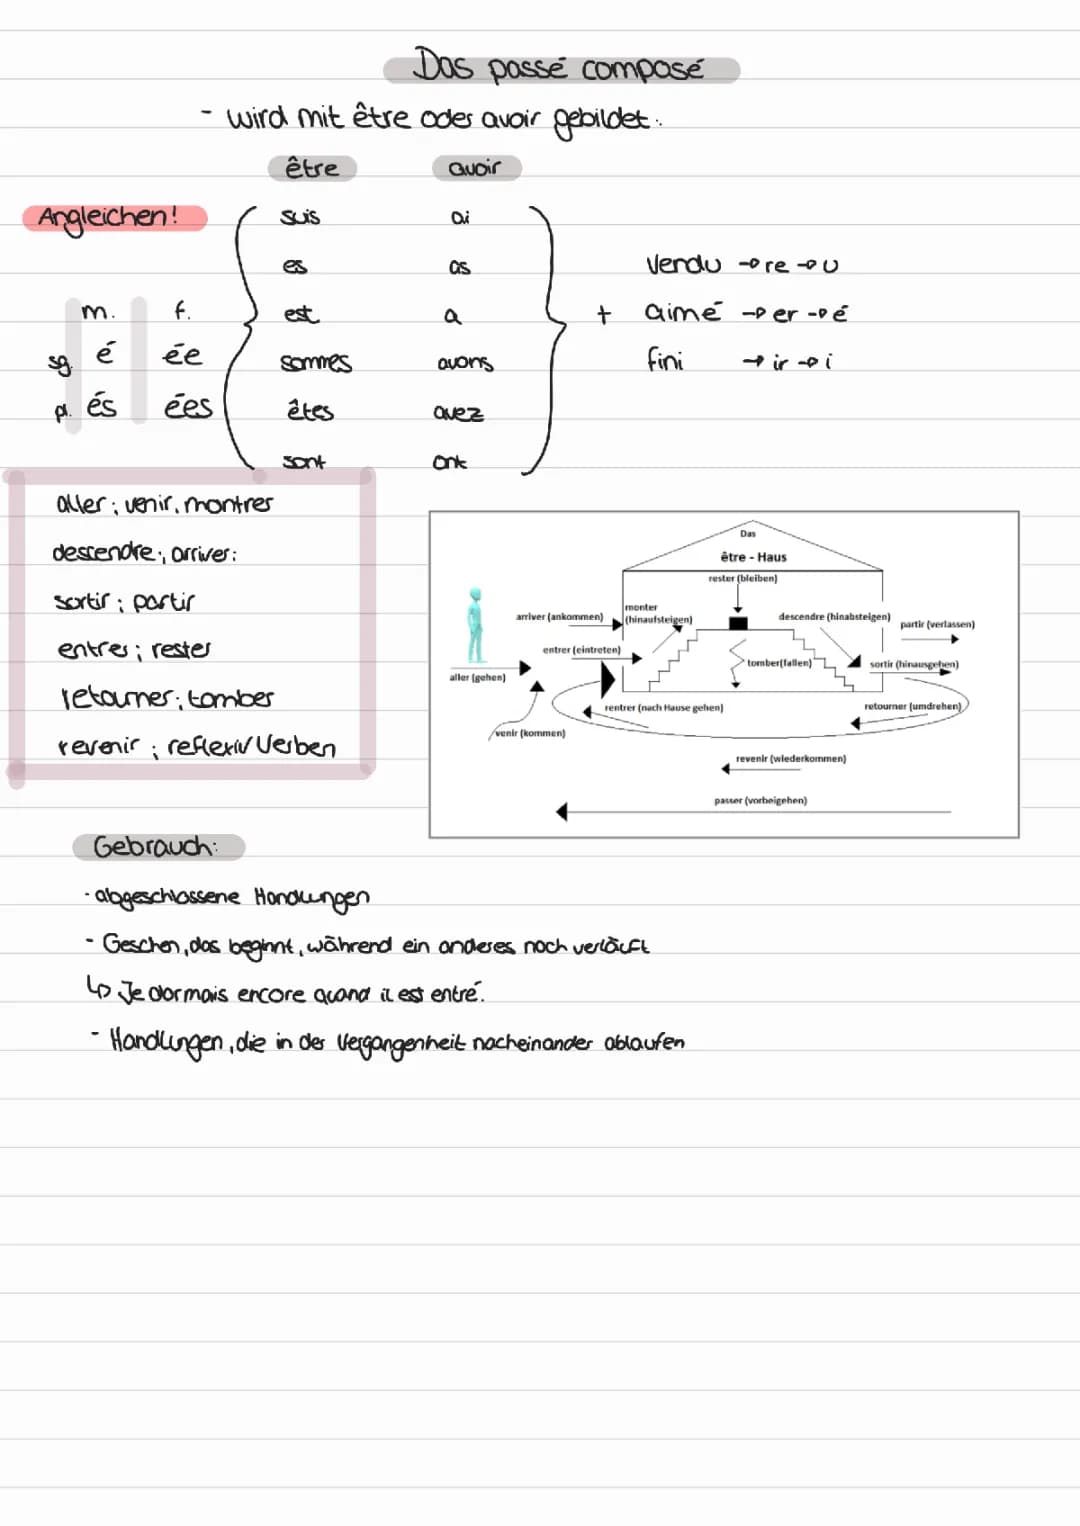 Das passé composé
- wird mit être oder avoir gebildet.
être avoir
Angleichen!
suis ai
es as
est a
sommes avons
êtes avez
sont ont
m. f.
sg. é ée
pl. és ées
vendu → re → u
+ aimé → er → é
fini → ir → i
aller; venir, montrer
descendre; arriver;
sortir; partir
entrer; rester
retourner; tomber
revenir; reflexiv Verben
Das
être - Haus
rester (bleiben)
monter
(hinaufsteigen)
arriver (ankommen)
descendre (hinabsteigen)
partir (verlassen)
entrer (eintreten)
tomber(fallen)
sortir (hinausgehen)
aller (gehen)
rentrer (nach Hause gehen)
retourner (umdrehen)
venir (kommen)
revenir (wiederkommen)
passer (vorbeigehen)
Gebrauch:
- abgeschlossene Handlungen
- Geschen, das beginnt, während ein anderes noch verläuft
↳ Je dormais encore quand il est entré.
- Handlungen, die in der Vergangenheit nacheinander ablaufen